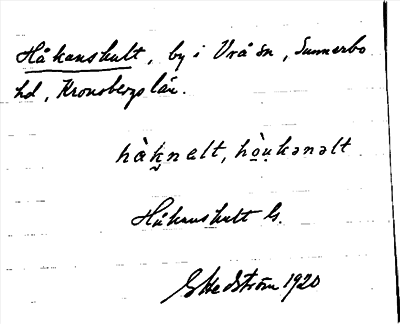 Håkanshult, by i Vrå sn, Sunnerbo
hd, Kronobergs län.
hàk̬nalt, hòu̯kənəlt
Håkanshult G.
G Hedström 1920